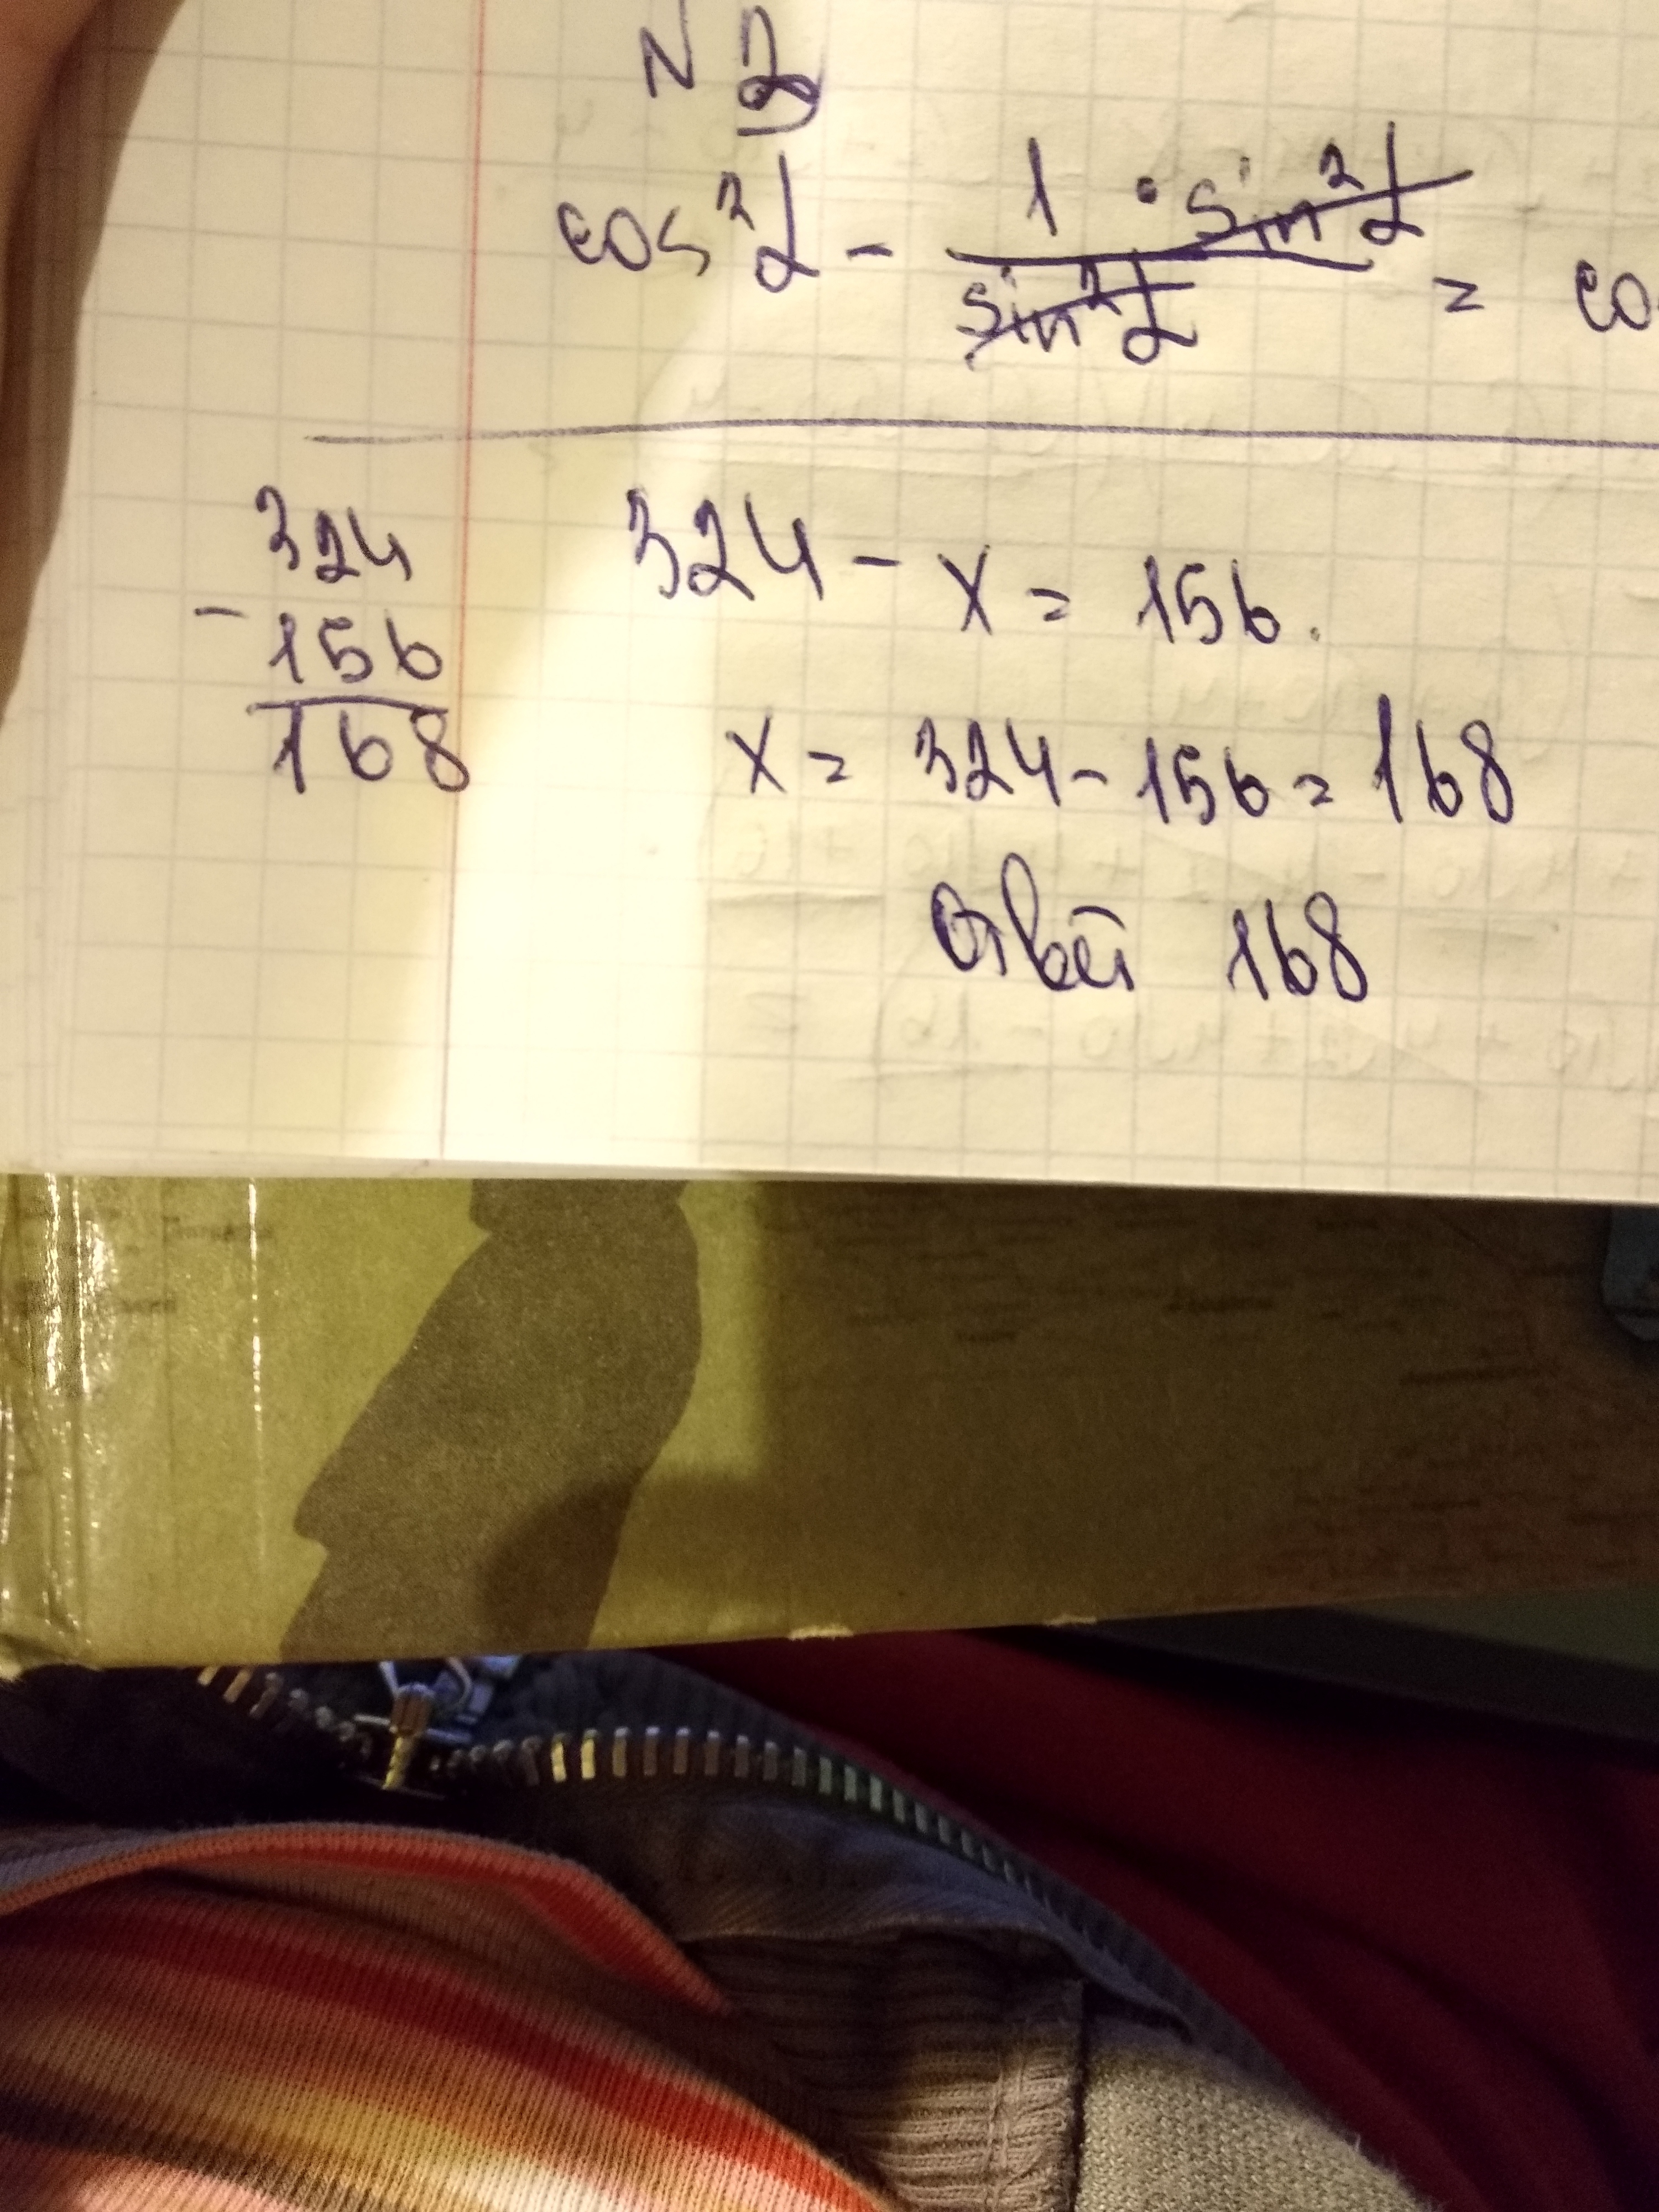 N 2
cos²α - 1 · sin²α / sin²α = co
324 - x = 156.
324
- 156
168
x = 324 - 156 = 168
Ответ 168